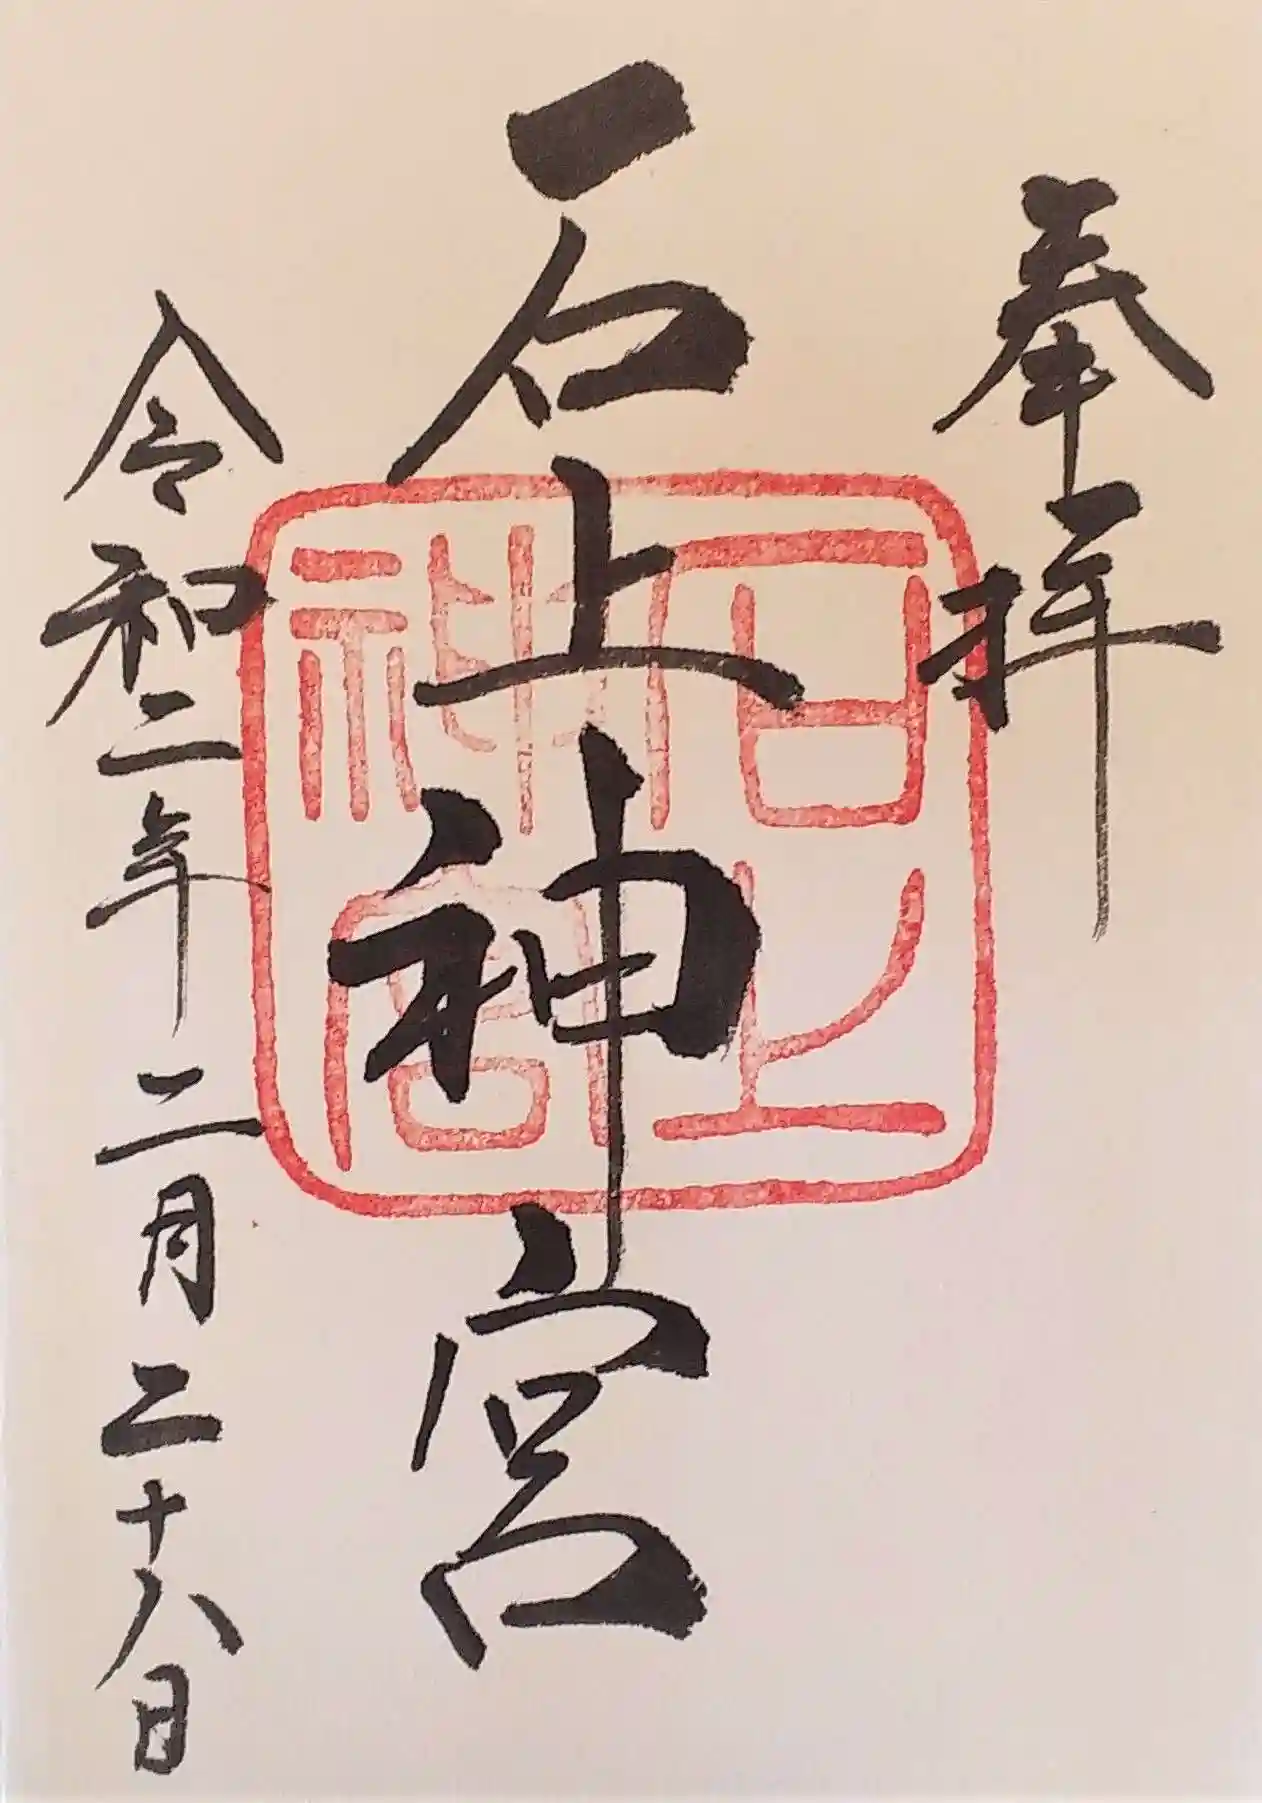 奉拝
石上神宮
石上
神宮
令和二年二月二十八日